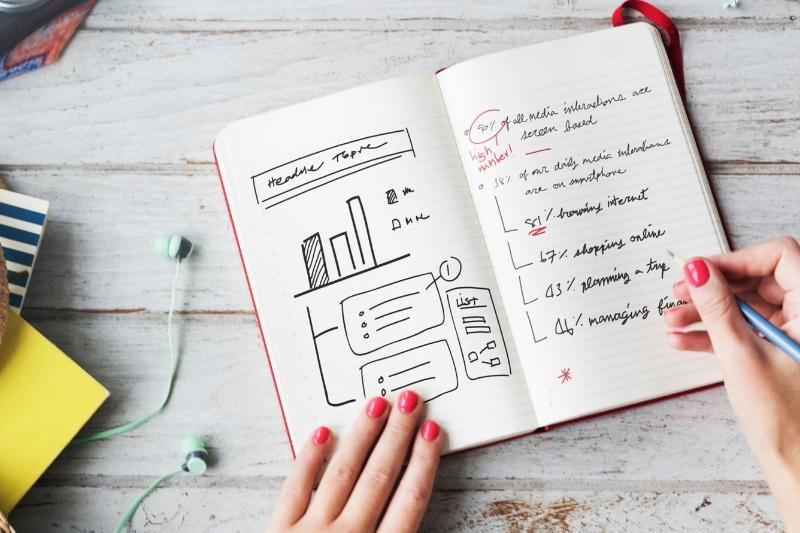 Headline Topic
1
LIST
90% of all media interactions are
screen based
high
number!
38% of our daily media interations
are on smartphone
81% browsing internet
67% shopping online
43% planning a trip
46% managing